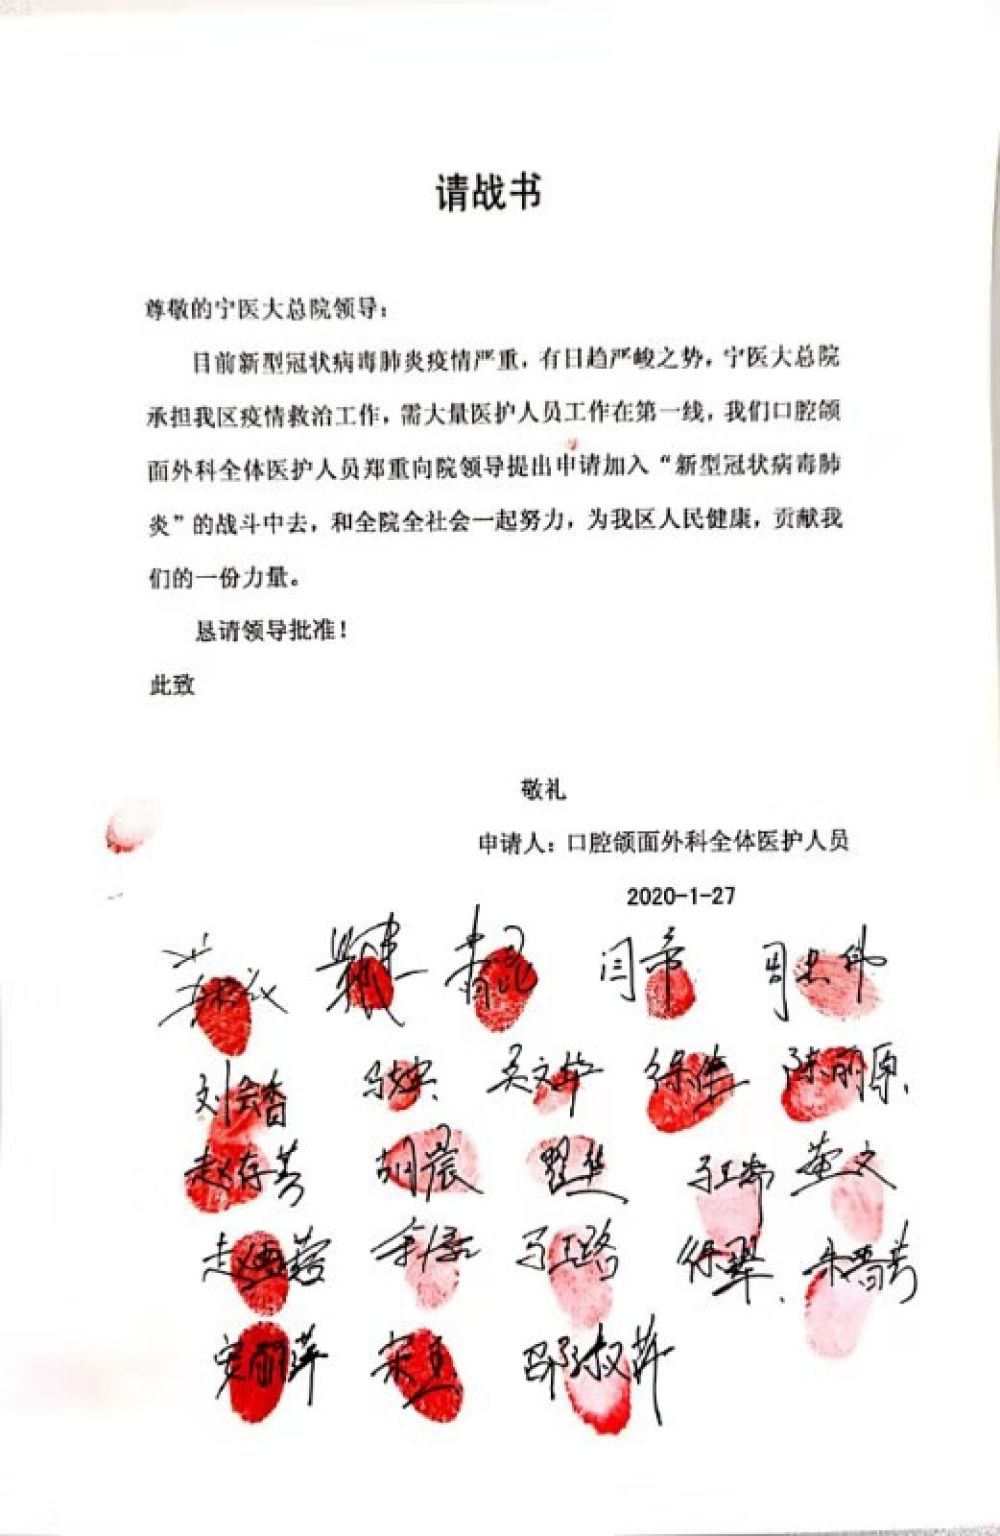 请战书
尊敬的宁医大总院领导：
目前新型冠状病毒肺炎疫情严重，有日趋严峻之势，宁医大总院
承担我区疫情救治工作，需大量医护人员工作在第一线，我们口腔颌
面外科全体医护人员郑重向院领导提出申请加入“新型冠状病毒肺
炎”的战斗中去，和全院全社会一起努力，为我区人民健康，贡献我
们的一份力量。
恳请领导批准！
此致
敬礼
申请人：口腔颌面外科全体医护人员
2020-1-27
闫帝 周忠伟
刘会香 吴文华 徐佳 陈丽原
赵存芳 胡晨 董文
徐翠
安丽萍